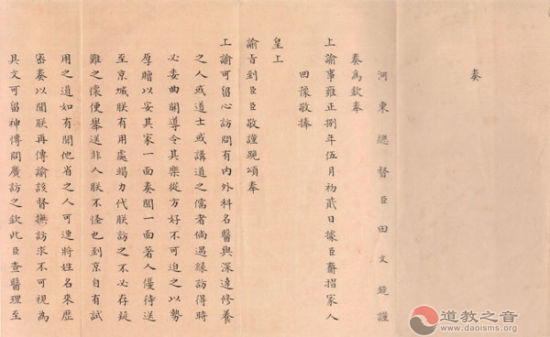 奏
河東總督臣田文鏡謹
奏為欽奉
上諭事雍正捌年伍月初貳日據臣齎摺家人
回豫敬捧
皇上
諭旨到臣臣敬謹跪頌奉
上諭可留心訪問有內外科名醫與深達修養
之人或道士或講道之儒者倘遇緣訪得時
必委曲開導令其樂從方好不可迫之以勢
厚贈以安其家一面奏聞一面著人優待送
至京城朕有用處竭力代朕訪之不必存疑
難之懷便舉送非人朕不怪也到京自有試
用之道如有聞他省之人可速將姓名來歷
密奏以聞朕再傳諭該督撫訪求不可視為
具文可留神傳問廣訪之欽此臣查醫理至
道教之音
www.daoisms.org